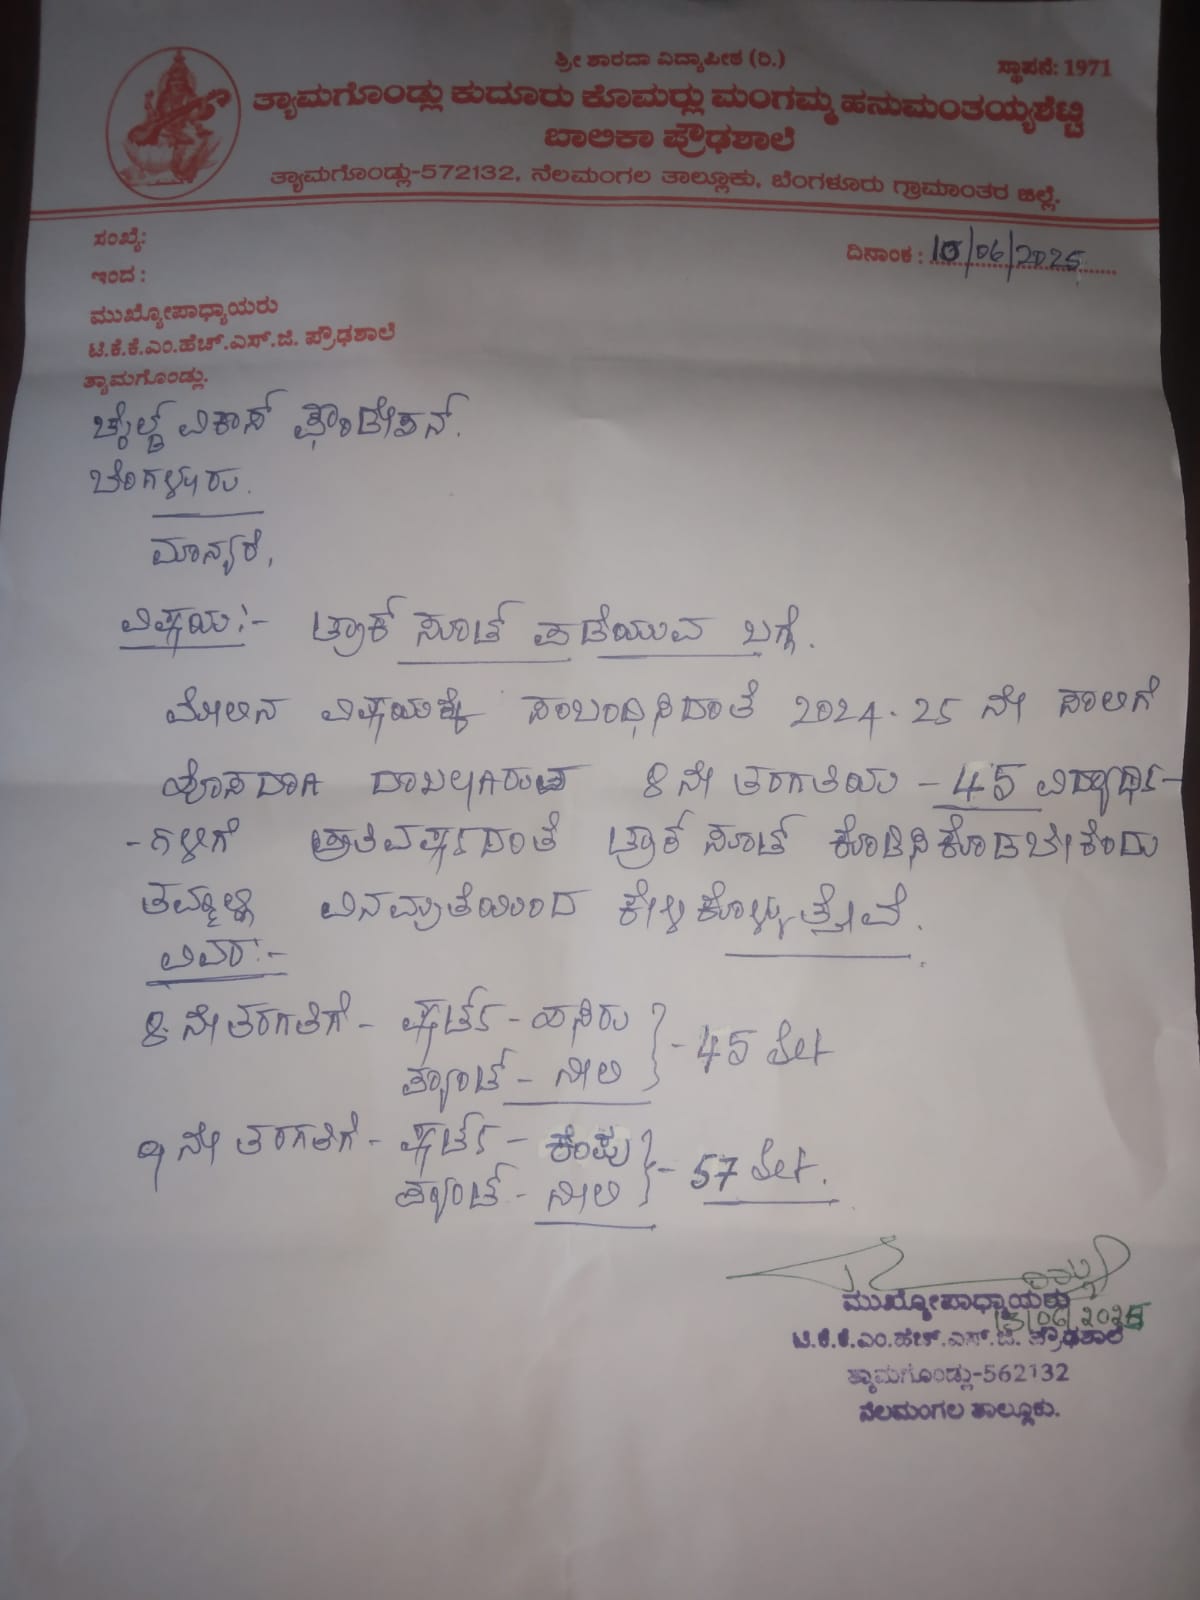 ಶ್ರೀ ಶಾರದಾ ವಿದ್ಯಾಪೀಠ (ರಿ.)
ಸ್ಥಾಪನೆ: 1971
ತ್ಯಾಮಗೊಂಡ್ಲು ಕುದೂರು ಕೊಮರ್ಲು ಮಂಗಮ್ಮ ಹನುಮಂತಯ್ಯಶೆಟ್ಟಿ
ಬಾಲಿಕಾ ಪ್ರೌಢಶಾಲೆ
ತ್ಯಾಮಗೊಂಡ್ಲು-572132, ನೆಲಮಂಗಲ ತಾಲ್ಲೂಕು, ಬೆಂಗಳೂರು ಗ್ರಾಮಾಂತರ ಜಿಲ್ಲೆ.
ಸಂಖ್ಯೆ:
ದಿನಾಂಕ : /06/2025
ಇಂದ :
ಮುಖ್ಯೋಪಾಧ್ಯಾಯರು
ಟಿ.ಕೆ.ಕೆ.ಎಂ.ಹೆಚ್.ಎಸ್.ಜಿ. ಪ್ರೌಢಶಾಲೆ
ತ್ಯಾಮಗೊಂಡ್ಲು.
ಚೈಲ್ಡ್ ವಿಕಾಸ್ ಫೌಂಡೇಶನ್.
ಬೆಂಗಳೂರು.
ಮಾನ್ಯರೆ,
ವಿಷಯ:- ಟ್ರಾಕ್ ಸೂಟ್ ಪಡೆಯುವ ಬಗ್ಗೆ.
ಮೇಲಿನ ವಿಷಯಕ್ಕೆ ಸಂಬಂಧಿಸಿದಂತೆ 2024-25 ನೇ ಸಾಲಿಗೆ
ಹೊಸದಾಗಿ ದಾಖಲಾಗಿರುವ 8 ನೇ ತರಗತಿಯ - 45 ವಿದ್ಯಾರ್ಥಿ-
-ಗಳಿಗೆ ಪ್ರತಿವರ್ಷದಂತೆ ಟ್ರಾಕ್ ಸೂಟ್ ಕೊಡಿಸಿಕೊಡಬೇಕೆಂದು
ತಮ್ಮಲ್ಲಿ ವಿನಮ್ರತೆಯಿಂದ ಕೇಳಿಕೊಳ್ಳುತ್ತೇವೆ.
ವಿವರ:-
8 ನೇ ತರಗತಿಗೆ - ಷರ್ಟ್ - ಹಸಿರು
ಪ್ಯಾಂಟ್ - ನೀಲಿ } - 45 ಸೆಟ್
9 ನೇ ತರಗತಿಗೆ - ಷರ್ಟ್ - ಕೆಂಪು
ಪ್ಯಾಂಟ್ - ನೀಲಿ } - 57 ಸೆಟ್.
ಮುಖ್ಯೋಪಾಧ್ಯಾಯರು
ಟಿ.ಕೆ.ಕೆ.ಎಂ.ಹೆಚ್.ಎಸ್.ಜಿ. ಪ್ರೌಢಶಾಲೆ
ತ್ಯಾಮಗೊಂಡ್ಲು-562132
ನೆಲಮಂಗಲ ತಾಲ್ಲೂಕು.